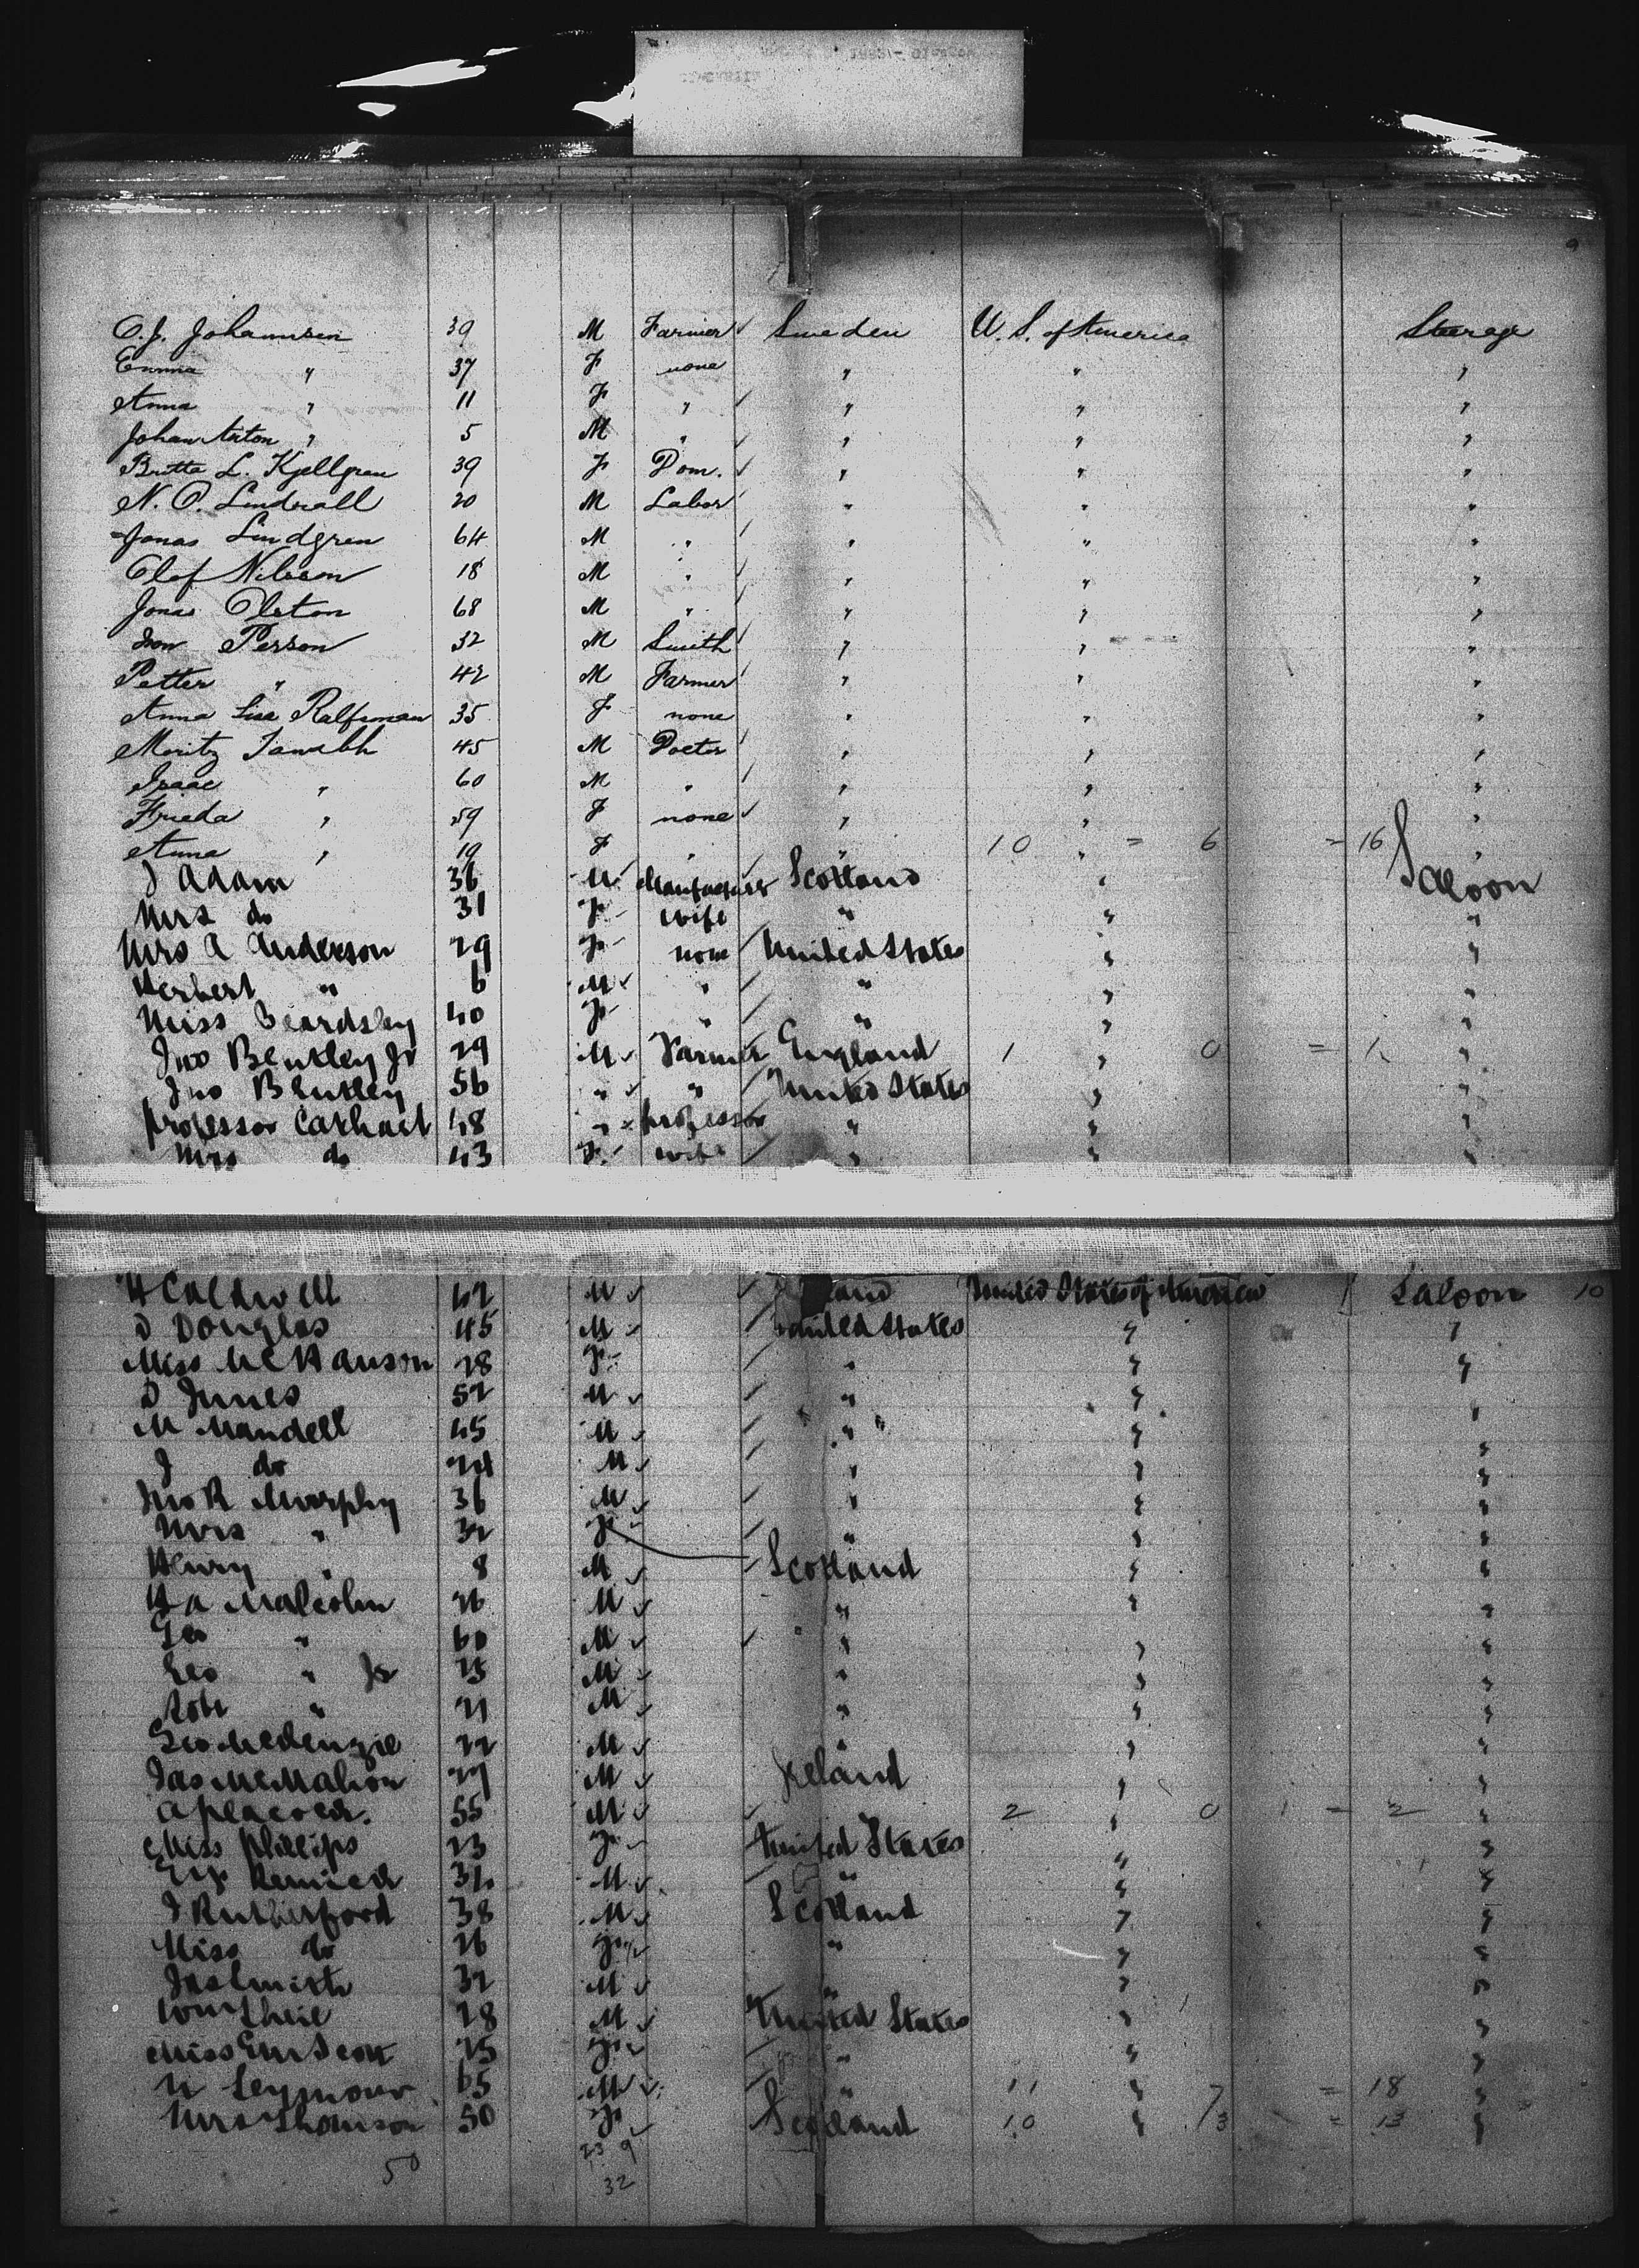 9
C. J. Johannsen 39 M Farmer Sweden U. S. of America Steerage
Emma " 37 F none " " "
Anna " 11 F " " " "
Johan Anton " 5 M " " " "
Britta L. Kjellgren 39 F Dom. " " "
N. O. Lindwall 20 M Labor " " "
Jonas Lindgren 64 M " " " "
Olof Nilsson 18 M " " " "
Jonas Olston 68 M " " " "
Person 32 M Smith " " "
Petter " 42 M Farmer " " "
Anna Lisa 35 F none " " "
Moritz 45 M Doctor " " "
Isaac " 60 M " " " "
Frieda " 59 F none " " "
Anna " 19 F " " 10 " = 6 = 16 "
J Adam 36 M Manufacturer Scotland " Saloon
Mrs do 31 F wife " " "
Mrs A Anderson 29 F none United States " "
Herbert " 6 M " " " "
Miss Beardsley 40 F " " " "
Jno Bentley Jr 29 M Farmer England 1 " 0 = 1 "
Jno Bentley 56 " " United States " "
Professor Carhart 48 " professor " " "
Mrs do 43 F wife " " "
H Caldwell 42 M United States of America Saloon 10
D Douglas 45 M United States " "
Miss 28 F " " "
D Junes 52 M " " "
M Mandell 45 M " " "
J do 24 M " " "
Jno R Murphy 36 M " " "
Mrs " 32 F " " "
Henry " 8 M Scotland " "
H A Malcolm 26 M " " "
Geo " 60 M " " "
Geo " Jr 25 M " " "
Robt " 21 M " " "
Geo McKenzie 22 M " " "
Jas McMahon 27 M Ireland " "
A Peacock. 55 M 2 " 0 1 = 2 "
Miss Phillips 23 F United States " "
Remick M " " "
J Rutherford 38 M Scotland " "
Miss do 26 F " " "
Jas Smith 32 M " " "
Wm 28 M United States " "
Miss Em Scott 25 F " " "
N Seymour 65 M " 11 " 7 = 18 "
Mrs Thomson 50 F Scotland 10 " 3 = 13 "
50 23 9
32